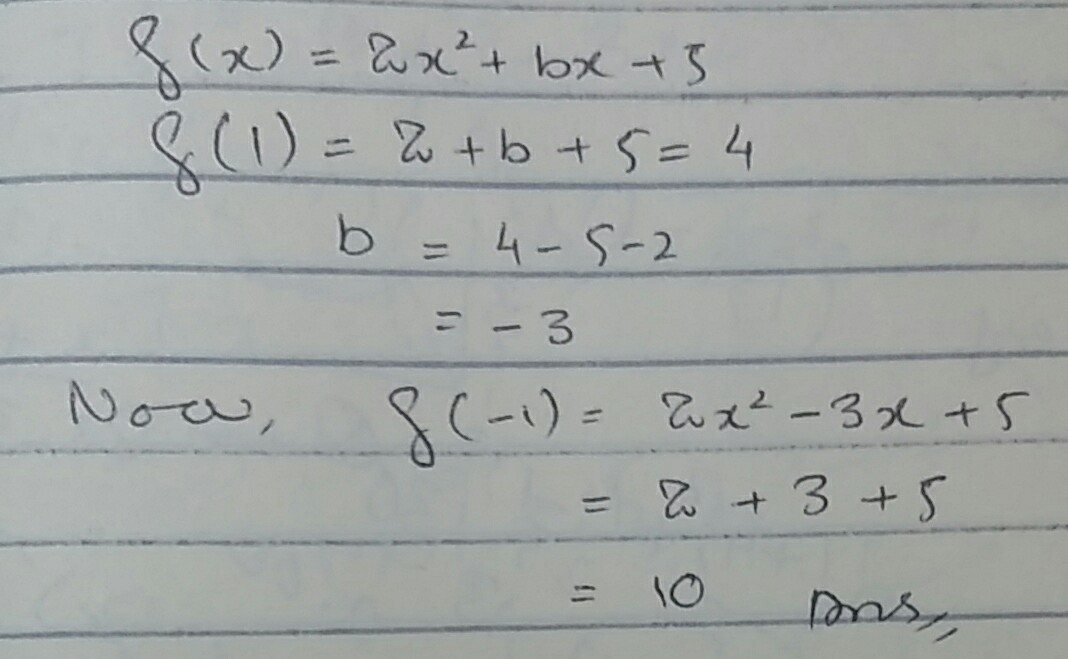 f(x) = 2x² + bx + 5
f(1) = 2 + b + 5 = 4
b = 4 - 5 - 2
= - 3
Now, f(-1) = 2x² - 3x + 5
= 2 + 3 + 5
= 10 Ans,,